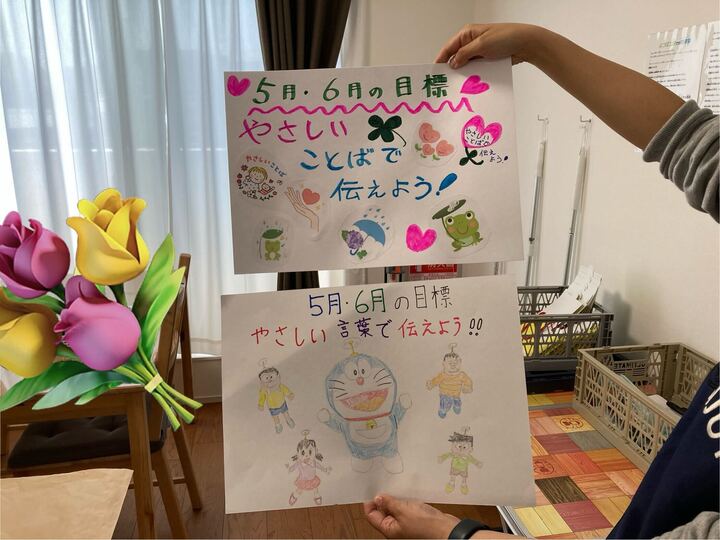 5月・6月の目標
やさしい
ことばで
伝えよう!
やさしいことばで
伝えよう!
5月・6月の目標
やさしい言葉で伝えよう!!